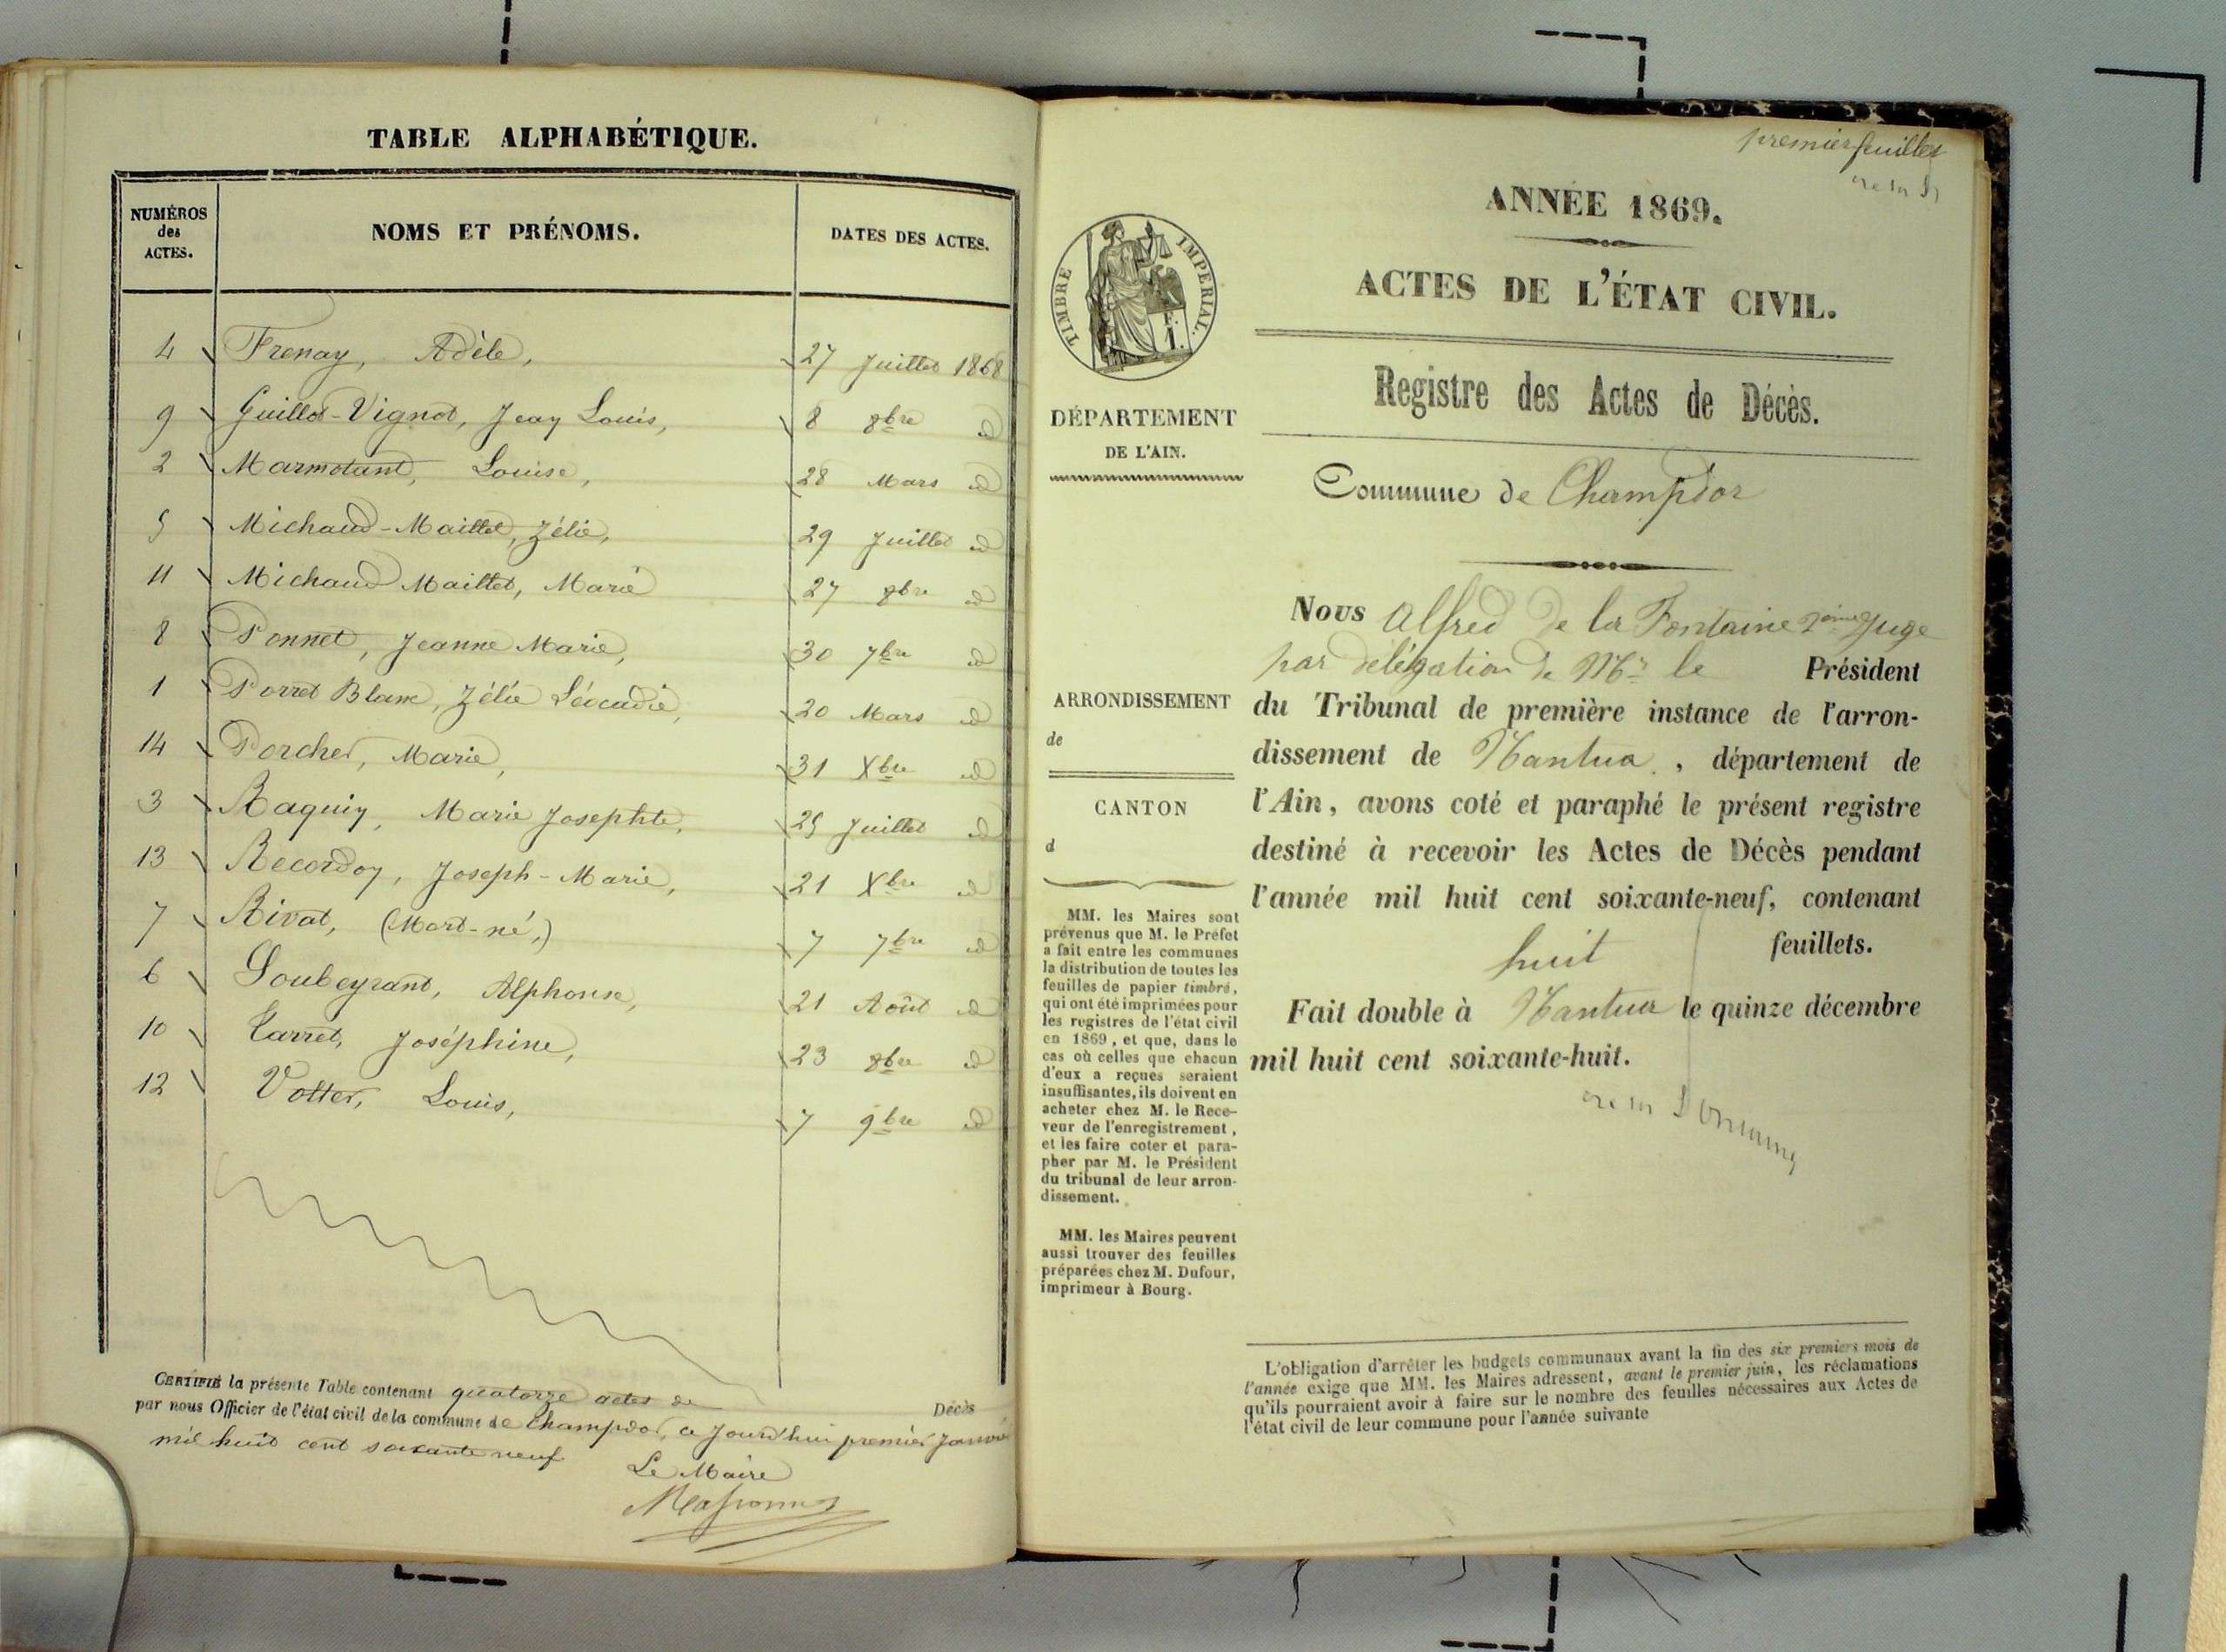 TABLE ALPHABÉTIQUE.
NUMÉROS des ACTES.
NOMS ET PRÉNOMS.
DATES DES ACTES.
4 Frenay, Adèle, 27 Juillet 1868
9 Guillot-Vignot, Jean Louis, 8 8bre id
2 Marmotant, Louise, 28 Mars id
5 Michaud-Maillet, Zélie, 29 Juillet id
11 Michaud Maillet, Marie 27 8bre id
8 Ponnet, Jeanne Marie, 30 7bre id
1 Porret Blanc, Zélie Léocadie, 20 Mars id
14 Porcher, Marie, 31 Xbre id
3 Raquin, Marie Josephte, 25 Juillet id
13 Recordon, Joseph-Marie, 21 Xbre id
7 Rivat, (Mort-né,) 7 7bre id
6 Soubeyrant, Alphonse, 21 Août id
10 Tarret, Joséphine, 23 8bre id
12 Votter, Louis, 7 9bre id
CERTIFIÉ la présente Table contenant quatorze actes de Décès
par nous Officier de l'état civil de la commune de Champdor, ce jourd'hui premier Janvier
mil huit cent soixante neuf
Le Maire
premier feuillet
ANNÉE 1869.
ACTES DE L'ÉTAT CIVIL.
Registre des Actes de Décès.
Commune de Champdor
TIMBRE IMPÉRIAL.
DÉPARTEMENT
DE L'AIN.
ARRONDISSEMENT
de
CANTON
d
MM. les Maires sont
prévenus que M. le Préfet
a fait entre les communes
la distribution de toutes les
feuilles de papier timbré,
qui ont été imprimées pour
les registres de l'état civil
en 1869, et que, dans le
cas où celles que chacun
d'eux a reçues seraient
insuffisantes, ils doivent en
acheter chez M. le Rece-
veur de l'enregistrement,
et les faire coter et para-
pher par M. le Président
du tribunal de leur arron-
dissement.
MM. les Maires peuvent
aussi trouver des feuilles
préparées chez M. Dufour,
imprimeur à Bourg.
Nous Alfred de la Fontaine 2ème Juge
par délégation de Mr le Président
du Tribunal de première instance de l'arron-
dissement de Nantua, département de
l'Ain, avons coté et paraphé le présent registre
destiné à recevoir les Actes de Décès pendant
l'année mil huit cent soixante-neuf, contenant
huit feuillets.
Fait double à Nantua le quinze décembre
mil huit cent soixante-huit.
L'obligation d'arrêter les budgets communaux avant la fin des six premiers mois de
l'année exige que MM. les Maires adressent, avant le premier juin, les réclamations
qu'ils pourraient avoir à faire sur le nombre des feuilles nécessaires aux Actes de
l'état civil de leur commune pour l'année suivante